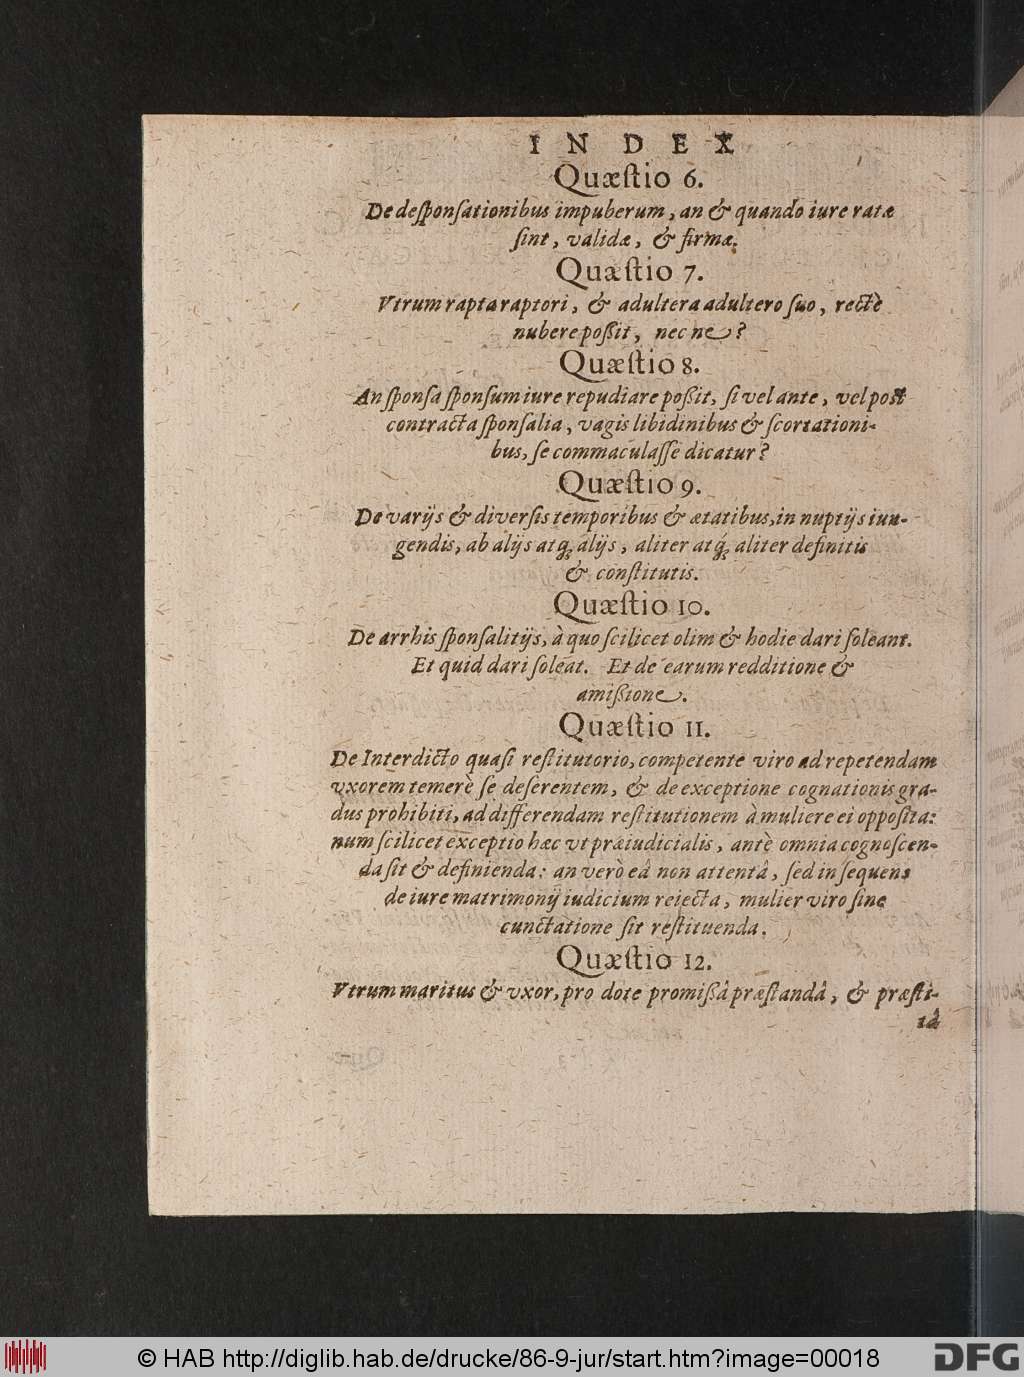 INDEX
Quæſtio 6.
De deſponſationibus impuberum, an & quando iure ratæ
ſint, validæ, & firmæ.
Quæſtio 7.
Vtrum rapta raptori, & adultera adultero ſuo, rectè
nubere poßit, nec ne?
Quæſtio 8.
An ſponſa ſponſum iure repudiare poßit, ſi vel ante, vel post
contracta ſponſalia, vagis libidinibus & ſcortationi-
bus, ſe commaculaſſe dicatur?
Quæſtio 9.
De varijs & diverſis temporibus & ætatibus, in nuptijs iun-
gendis, ab alijs atq; alijs, aliter atq́; aliter definitis
& conſtitutis.
Quæſtio 10.
De arrhis ſponſalitijs, à quo ſcilicet olim & hodie dari ſoleant.
Et quid dari ſoleat. Et de earum redditione &
amißione.
Quæſtio 11.
De Interdicto quaſi reſtitutorio, competente viro ad repetendam
vxorem temerè ſe deſerentem, & de exceptione cognationis gra-
dus prohibiti, ad differendam reſtitutionem à muliere ei oppoſita:
num ſcilicet exceptio hæc vt præiudicialis, antè omnia cognoſcen-
da ſit & definienda: an verò eâ non attentâ, ſed in ſequens
de iure matrimonij iudicium reiecta, mulier viro ſine
cunctatione ſit reſtituenda.
Quæſtio 12.
Vtrum maritus & vxor, pro dote promißâ præſtandâ, & præſti-
tâ
© HAB http://diglib.hab.de/drucke/86-9-jur/start.htm?image=00018
DFG